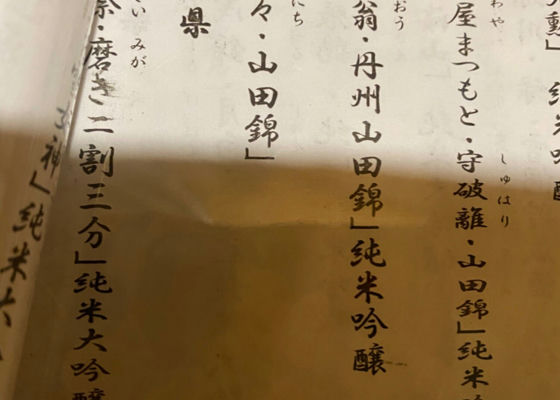 動」純米吟醸
屋まつもと・守破離・山田錦」純米吟
わや
しゅはり
翁・丹州山田錦」純米吟醸
おう
々・山田錦」
にち
県
祭・磨き二割三分」純米大吟醸
さい みが
神」純米大